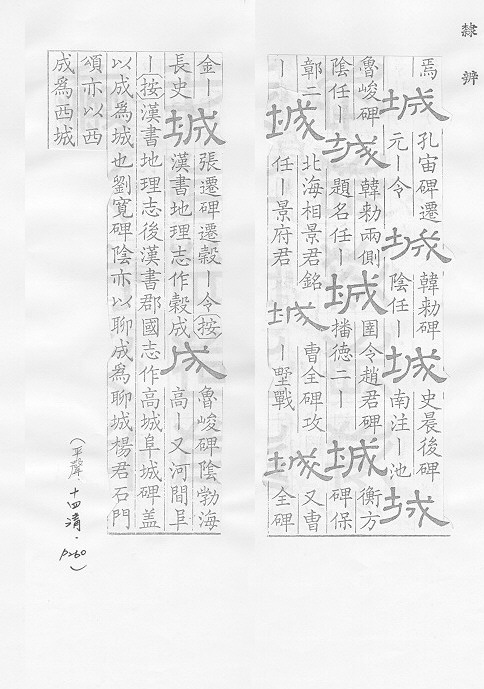 隸辨
焉
城
孔宙碑遷
元丨令
城
韓勑碑
陰任丨
城
史晨後碑
南注丨池
城
魯峻碑
陰任丨
城
韓勑兩側
題名任丨
城
圉令趙君碑
播德二丨
城
衡方
碑保
鄣二
丨
城
北海相景君銘
任丨景府君
城
曹全碑攻
丨壄戰
城
又曹
全碑
金丨
長史
城
張遷碑遷穀丨令按
漢書地理志作穀成
成
魯峻碑陰勃海
高丨又河間阜
丨按漢書地理志後漢書郡國志作高城阜城碑蓋
以成爲城也劉寬碑陰亦以聊成爲聊城楊君石門
頌亦以西
成爲西城
(平聲十四清.P260)